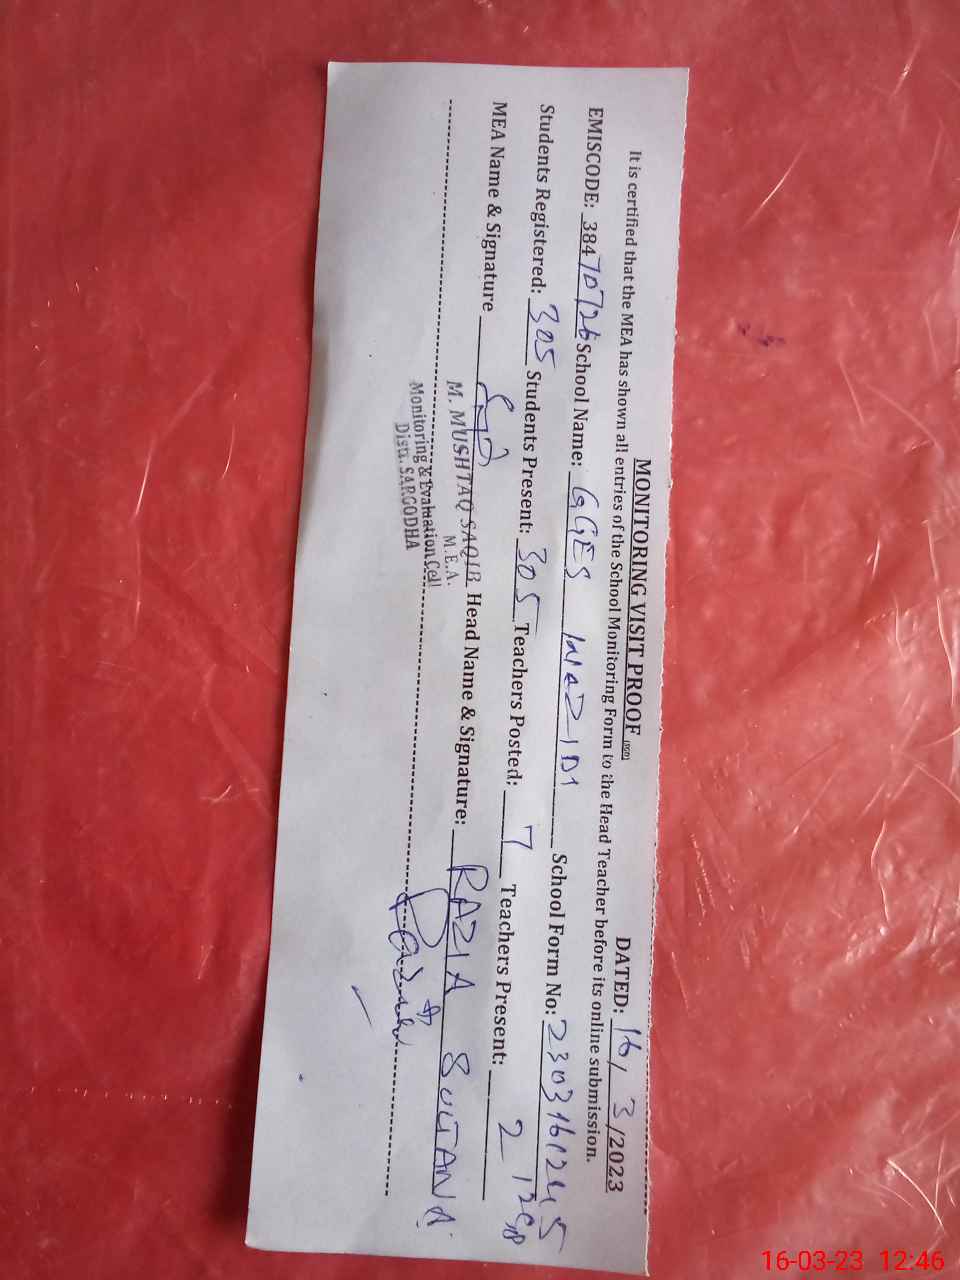 MONITORING VISIT PROOF DATED: 16/3/2023
It is certified that the MEA has shown all entries of the School Monitoring Form to the Head Teacher before its online submission.
EMISCODE: 38470726 School Name: GGES School Form No: 2303161245
Students Registered: 305 Students Present: 305 Teachers Posted: 7 Teachers Present: 2
MEA Name & Signature Head Name & Signature: RAZIA SULTANA
M. MUSHTAQ SAQIB
M.E.A.
Monitoring & Evaluation Cell
Distt. SARGODHA
16-03-23 12:46